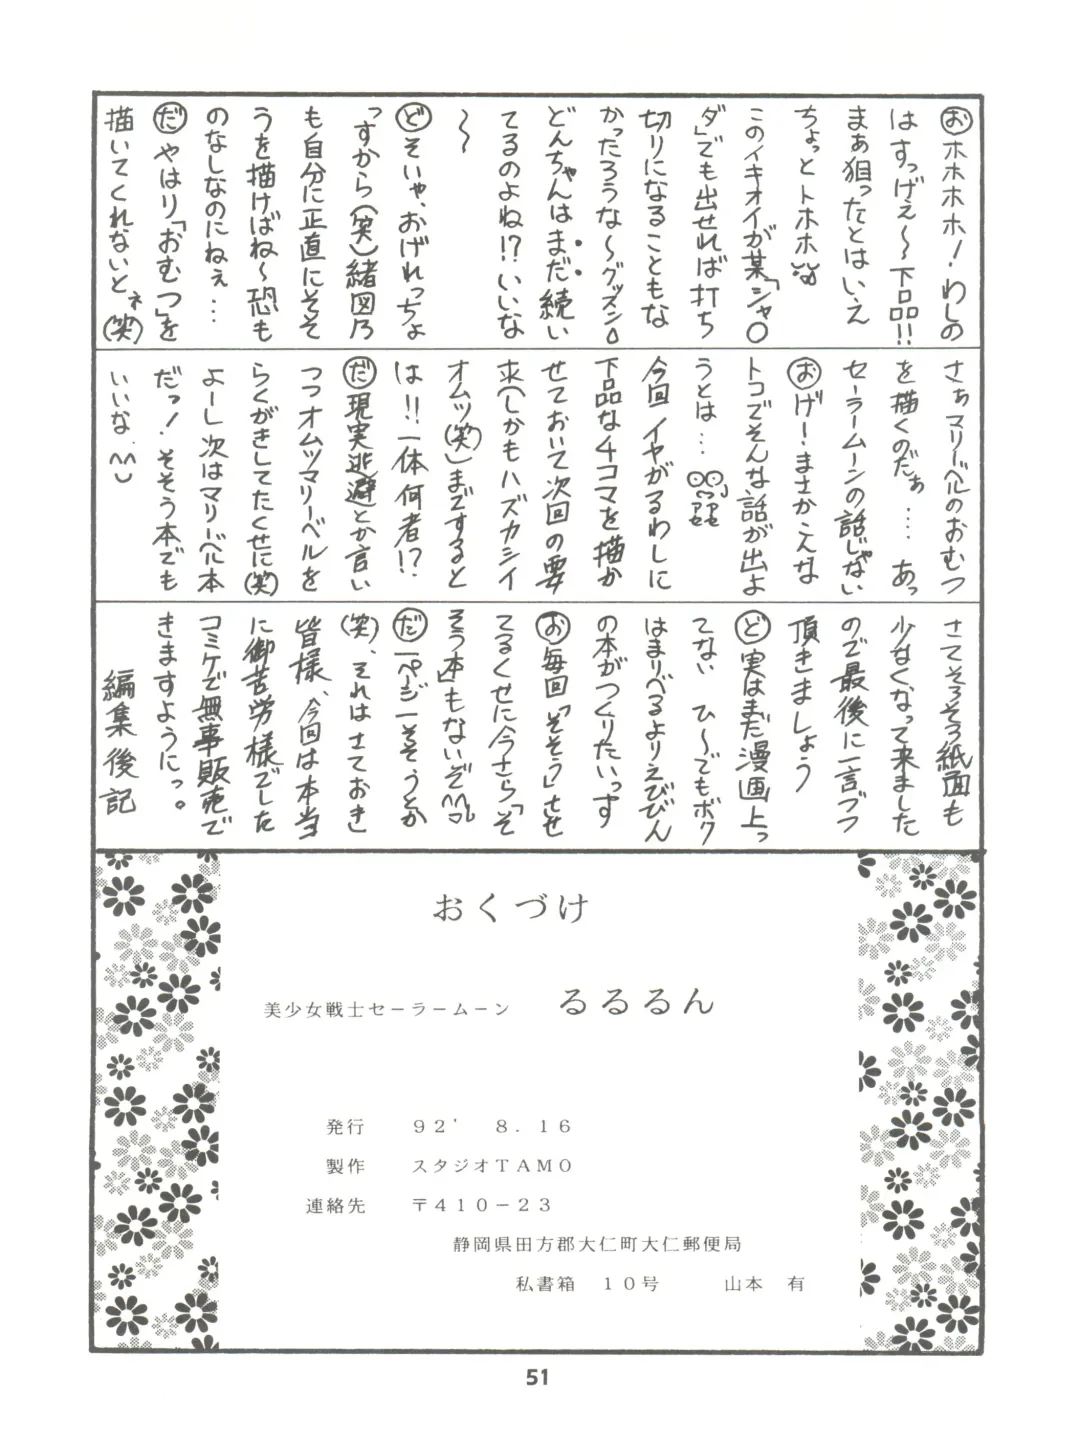 おホホホホ！わしの
はすっげぇ～下品！！
まぁ狙ったとはいえ
ちょっとトホホ
このイキオイが某「シャ〇
ダ」でも出せれば打ち
切りになることもな
かったろうな～グッスン
どんちゃんはまだ続い
てるのよね！？いいな
～
どそいゃ、おげれっちょ
っすから（笑）緒図乃
も自分に正直にそそ
うを描けばね～恐も
のなしなのにねぇ…
だやはり「おむつ」を
描いてくれないとネ（笑）
さぁマリーベルのおむつ
を描くのだぁ…あっ
セーラームーンの話じゃない
おげー！まさかこんな
トコでそんな話が出よ
うとは…
今回イヤがるわしに
下品な4コマを描か
せておいて次回の要
求（しかもハズカシイ
オムツ（笑）まですると
は！！一体何者！？
だ現実逃避とか言い
つつオムツマリーベルを
らくがきしてたくせに（笑）
よーし次はマリーベル本
だっ！そそう本でも
いいな
さてそろそろ紙面も
少なくなって来ました
ので最後に一言ブツ
頂きましょう
ど実はまだ漫画上っ
てない ひ～でもボク
はまりべるよりえびびん
の本がつくりたいっす
お毎回「そそう」させ
てるくせに今さら「そ
そう本」もないぞ
だ一ページ一そそうとか
（笑）、それはさておき
皆様、今回は本当
に御苦労様でした
コミケで無事販売で
きますようにっ。
編集後記
おくづけ
美少女戦士セーラームーン　るるるん
発行　９２’　８．１６
製作　スタジオＴＡＭＯ
連絡先　〒４１０－２３
静岡県田方郡大仁町大仁郵便局
私書箱　１０号　山本　有
51